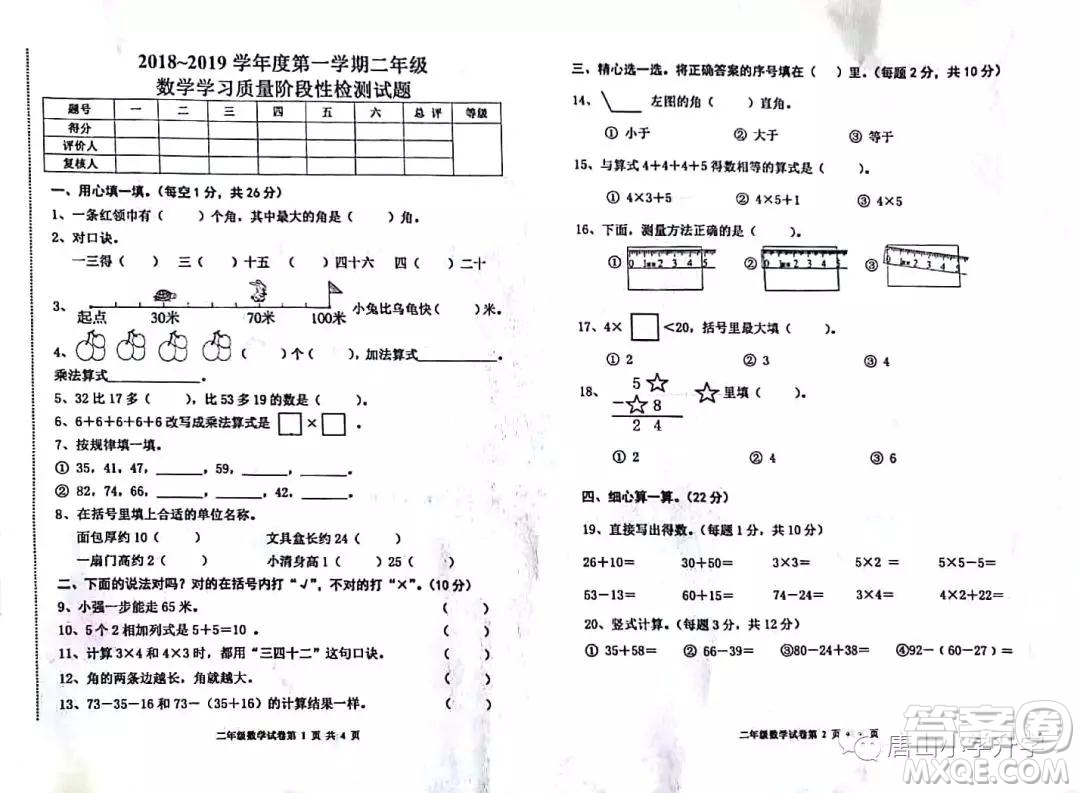 2018~2019 学年度第一学期二年级
数学学习质量阶段性检测试题
题号 一 二 三 四 五 六 总 评 等级
得分
评价人
复核人
一、用心填一填。（每空1分，共26分）
1、一条红领巾有（ ）个角，其中最大的角是（ ）角。
2、对口诀。
一三得（ ） 三（ ）十五 （ ）四十六 四（ ）二十
3、
起点 30米 70米 100米 小兔比乌龟快（ ）米。
4、（ ）个（ ），加法算式__________。
乘法算式__________。
5、32比17多（ ），比53多19的数是（ ）。
6、6+6+6+6+6改写成乘法算式是□×□。
7、按规律填一填。
① 35，41，47，______，59，______，______。
② 82，74，66，______，______，42，______。
8、在括号里填上合适的单位名称。
面包厚约10（ ） 文具盒长约24（ ）
一扇门高约2（ ） 小清身高1（ ）25（ ）
二、下面的说法对吗？对的在括号内打“√”，不对的打“×”。（10分）
9、小强一步能走65米。 （ ）
10、5个2相加列式是5+5=10 。 （ ）
11、计算3×4和4×3时，都能用“三四十二”这句口诀。 （ ）
12、角的两条边越长，角就越大。 （ ）
13、73-35-16和73-（35+16）的计算结果一样。 （ ）
二年级数学试卷第 1 页 共 4 页
三、精心选一选。将正确答案的序号填在（ ）里。（每题2分，共10分）
14、 左图的角（ ）直角。
① 小于 ② 大于 ③ 等于
15、与算式4+4+4+5得数相等的算式是（ ）。
① 4×3+5 ② 4×5+1 ③ 4×5
16、下面，测量方法正确的是（ ）。
① 0 1厘米 2 3 4 5 ② 0 1厘米 2 3 4 5 ③ 0 1厘米 2 3 4 5
17、4×□<20，括号里最大填（ ）。
① 2 ② 3 ③ 4
18、 5 ☆
－ ☆ 8
2 4
☆里填（ ）
① 2 ② 4 ③ 6
四、细心算一算。（22分）
19、直接写出得数。（每题1分，共10分）
26+10= 30+50= 3×3= 5×2= 5×5-5=
53-13= 60+14= 74-24= 3×4= 2×4+3=
20、竖式计算。（每题3分，共12分）
① 35+58= ② 66-39= ③80-24+38= ④92-（60-27）=
二年级数学试卷第 2 页 页
唐山小学升学
答案圈
MXQE.COM